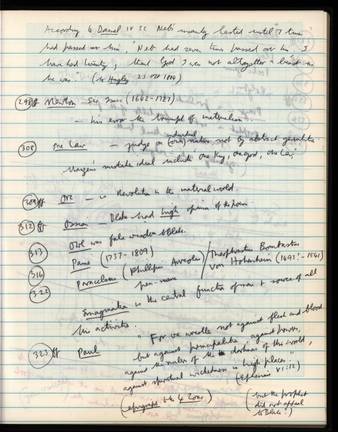 According to Daniel IV 32 Neb's insanity lasted until "7 times
had passed over him, "Neb had seven times passed over him – I
have had twenty; thank God I was not altogether a beast as
he was." (to Hayley 23 Oct 1804)
Newton – Sir Isaac (1642-1727)
– his error the triumph of materialism
308 One Law – judge as individual natures not by abstract
Urizen's ideal include one King, one god, one Law
309ff Orc – is Revolution in the material world.
312ff Ossian – Blake had high opinion of the poems
313 Ozoth
Paine (1737-1809)
316 Paracelsus (Phillipus Aureolus / Theophrastus Bombastus
322 pen-name von Hohenheim (1493?-1541)
Imagination is the central function of man & source of all
his activities.
323ff Paul "For we wrestle not against flesh and blood,
but against principalities, against powers,
against the rulers of the darkness of this world,
against spiritual wickedness in high places."
(Ephesians VI:12)
(epigraph to 4 Zoas)
(but the prophet
did not appeal
to Blake!)